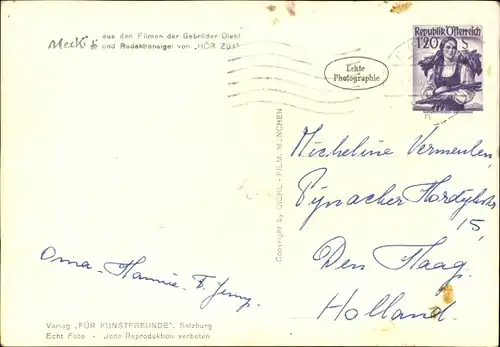 Mecki aus den Filmen der Gebrüder Diehl
und Redaktionsigel von „HÖR ZU!"
Echte
Photographie
Republik Österreich
1'20 S
Copyright by DIEHL - FILM, MÜNCHEN
Micheline Vermeulen,
Pynacker Hordijkstr
15,
Den Haag.
Holland.
Oma - Hannie -
Verlag „FÜR KUNSTFREUNDE", Salzburg
Echt Foto - Jede Reproduktion verboten